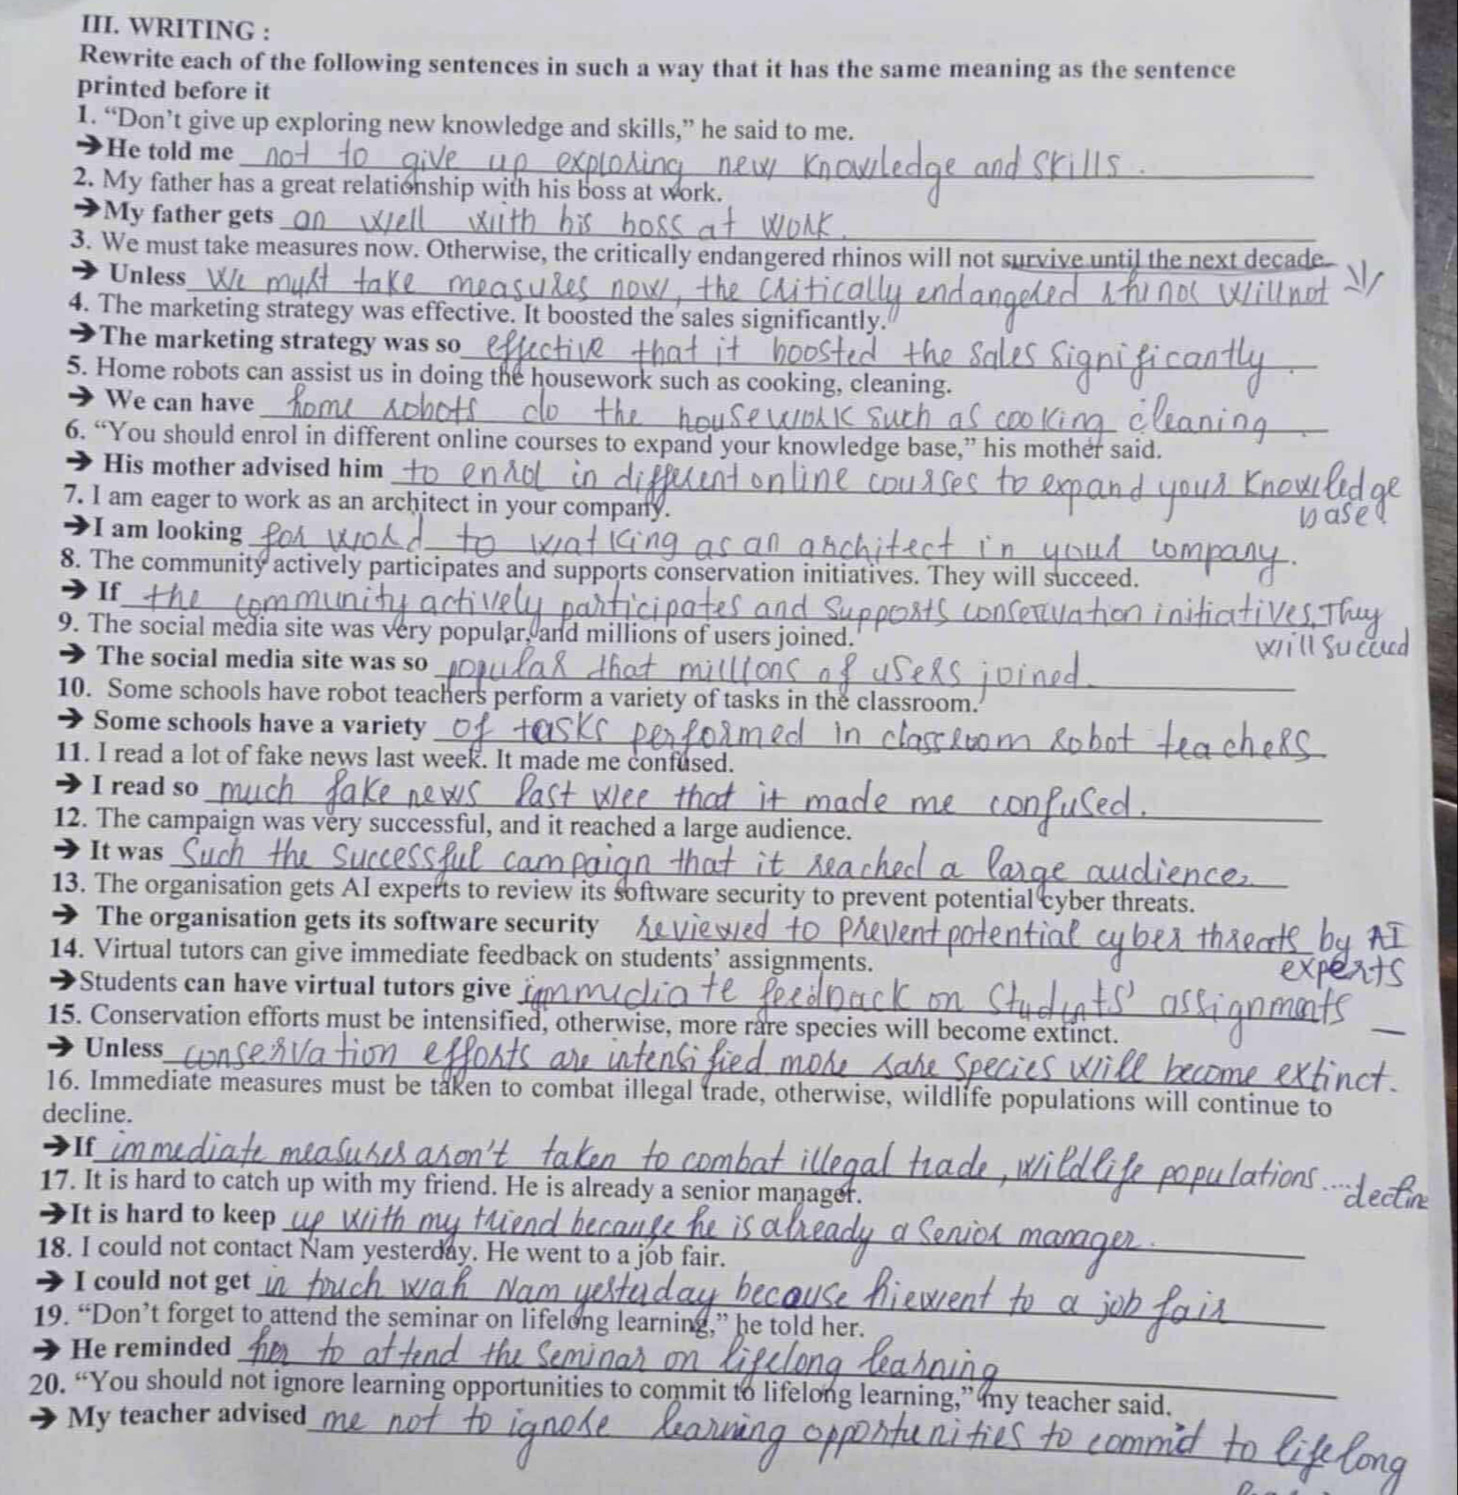 III. WRITING :
Rewrite each of the following sentences in such a way that it has the same meaning as the sentence
printed before it
1. “Don’t give up exploring new knowledge and skills,” he said to me.
➔He told me not to give up exploring new knowledge and skills.
2. My father has a great relationship with his boss at work.
➔My father gets on well with his boss at work.
3. We must take measures now. Otherwise, the critically endangered rhinos will not survive until the next decade.
➔ Unless we must take measures now, the critically endangered rhinos will not
4. The marketing strategy was effective. It boosted the sales significantly.
➔The marketing strategy was so effective that it boosted the sales significantly.
5. Home robots can assist us in doing the housework such as cooking, cleaning.
➔ We can have home robots do the housework such as cooking cleaning.
6. “You should enrol in different online courses to expand your knowledge base,” his mother said.
➔ His mother advised him to enrol in different online courses to expand your knowledge
base.
7. I am eager to work as an architect in your company.
➔I am looking to as an architect in your company.
8. The community actively participates and supports conservation initiatives. They will succeed.
➔ If the community actively participates and supports conservation initiatives, They
will succeed
9. The social media site was very popular, and millions of users joined.
➔ The social media site was so popular that millions of users joined.
10. Some schools have robot teachers perform a variety of tasks in the classroom.
➔ Some schools have a variety of tasks performed in classroom robot teachers
11. I read a lot of fake news last week. It made me confused.
➔ I read so much fake news last wee that it made me confused.
12. The campaign was very successful, and it reached a large audience.
➔ It was such the successful campaign that it reached a large audience.
13. The organisation gets AI experts to review its software security to prevent potential cyber threats.
➔ The organisation gets its software security reviewed to prevent potential cyber threats by AI
experts
14. Virtual tutors can give immediate feedback on students’ assignments.
➔Students can have virtual tutors give immediate feedback on students' assignments
15. Conservation efforts must be intensified, otherwise, more rare species will become extinct.
➔ Unless conservation efforts are intensified more rare species will become extinct.
16. Immediate measures must be taken to combat illegal trade, otherwise, wildlife populations will continue to
decline.
➔If immediate measures aren't taken to combat illegal trade, wildlife populations....
decline
17. It is hard to catch up with my friend. He is already a senior manager.
➔It is hard to keep up with my friend because he is already a senior manager.
18. I could not contact Nam yesterday. He went to a job fair.
➔ I could not get in touch with Nam yesterday because he went to a job fair
19. “Don’t forget to attend the seminar on lifelong learning,” he told her.
➔ He reminded her to attend the seminar on lifelong learning
20. “You should not ignore learning opportunities to commit to lifelong learning,” my teacher said.
➔ My teacher advised me not to ignore learning opportunities to commit to lifelong